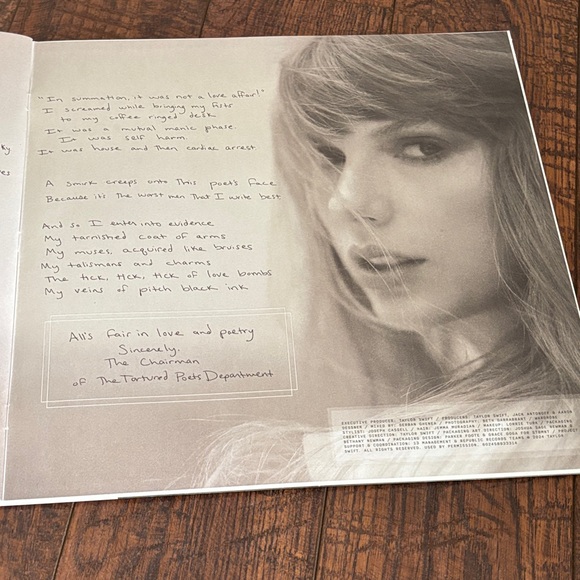 ky
es
"In summation, it was not a love affair!"
I screamed while bringing my fists
to my coffee ringed desk
It was a mutual manic phase.
It was self harm.
It was house and then cardiac arrest.
A smirk creeps onto this poet's face
Because it's the worst men that I write best.
And so I enter into evidence
My tarnished coat of arms
My muses, acquired like bruises
My talismans and charms
The tick, tick, tick of love bombs
My veins of pitch black ink
All's fair in love and poetry
Sincerely,
The Chairman
of The Tortured Poets Department
EXECUTIVE PRODUCER: TAYLOR SWIFT / PRODUCERS: TAYLOR SWIFT, JACK ANTONOFF & AARON
DESSNER / MIXED BY: SERBAN GHENEA / PHOTOGRAPHY: BETH GARRABRANT / WARDROBE
STYLIST: JOSEPH CASSELL / HAIR: JEMMA MURADIAN / MAKEUP: LORRIE TURK / PACKAGING
CREATIVE DIRECTION: TAYLOR SWIFT / PACKAGING ART DIRECTION: JOSHUA SAGE NEWMAN &
BETHANY NEWMAN / PACKAGING DESIGN: PARKER FOOTE &
SUPPORT & COORDINATION: 13 MANAGEMENT & REPUBLIC RECORDS TEAMS © 2024 TAYLOR
SWIFT. ALL RIGHTS RESERVED. USED BY PERMISSION.